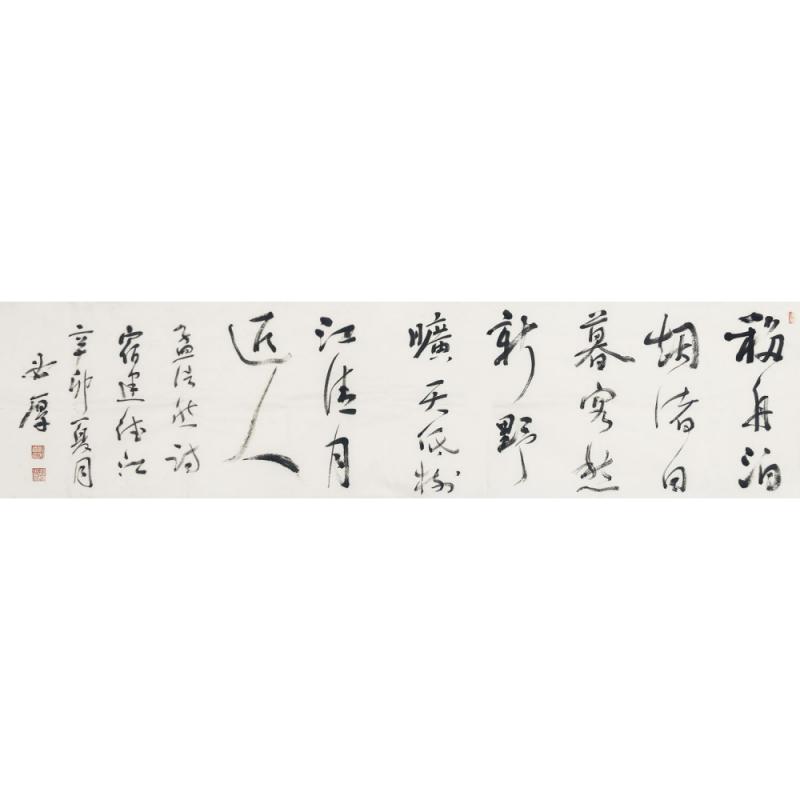 移舟泊
烟渚日
暮客愁
新野
曠天低樹
江清月
近人
孟浩然诗
宿建德江
辛卯夏月
厚